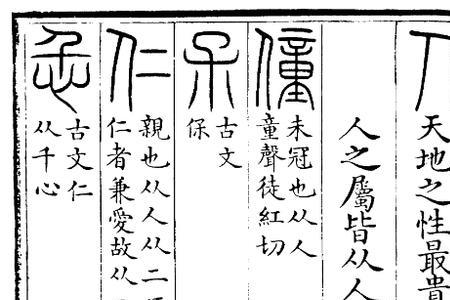 人 天地之性最貴
人之屬皆从人
僮 未冠也从人
童聲徒紅切
古文
保
仁 親也从人从二
仁者兼愛故从
忎 古文仁
从千心